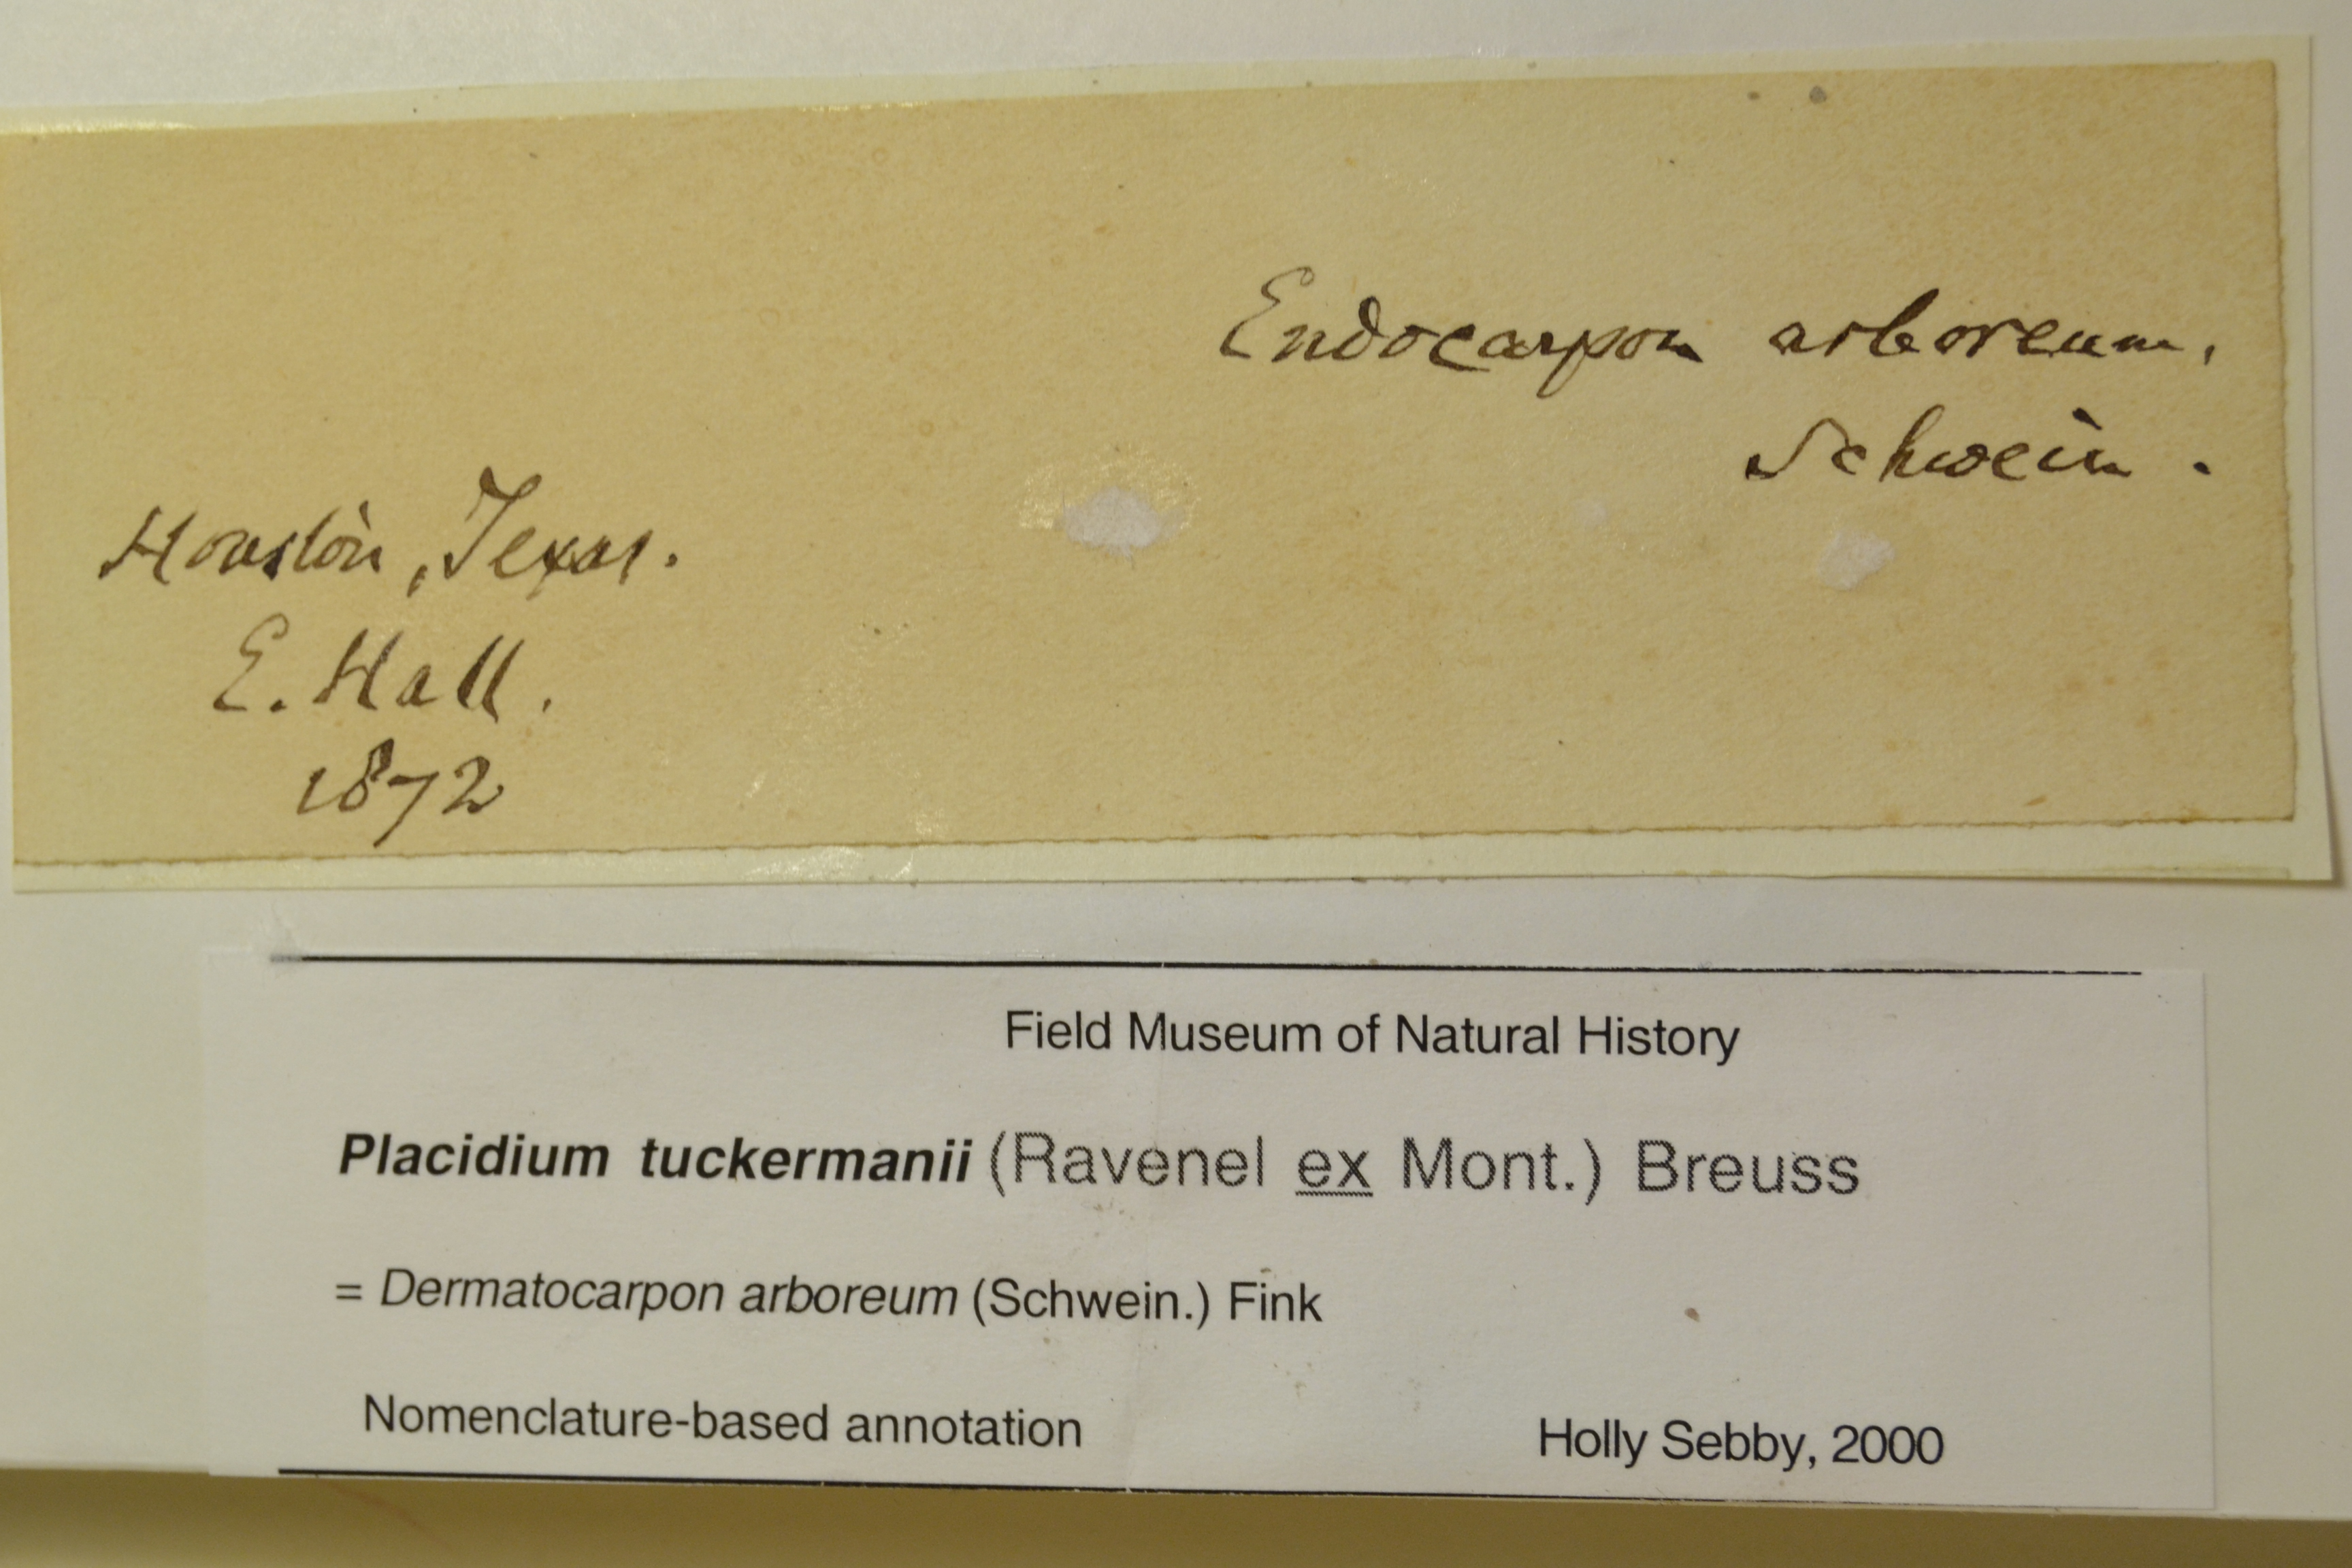 Endocarpon arboreum,
Schwein.
Houston, Texas.
E. Hall.
1872
Field Museum of Natural History
Placidium tuckermanii (Ravenel ex Mont.) Breuss
= Dermatocarpon arboreum (Schwein.) Fink
Nomenclature-based annotation Holly Sebby, 2000